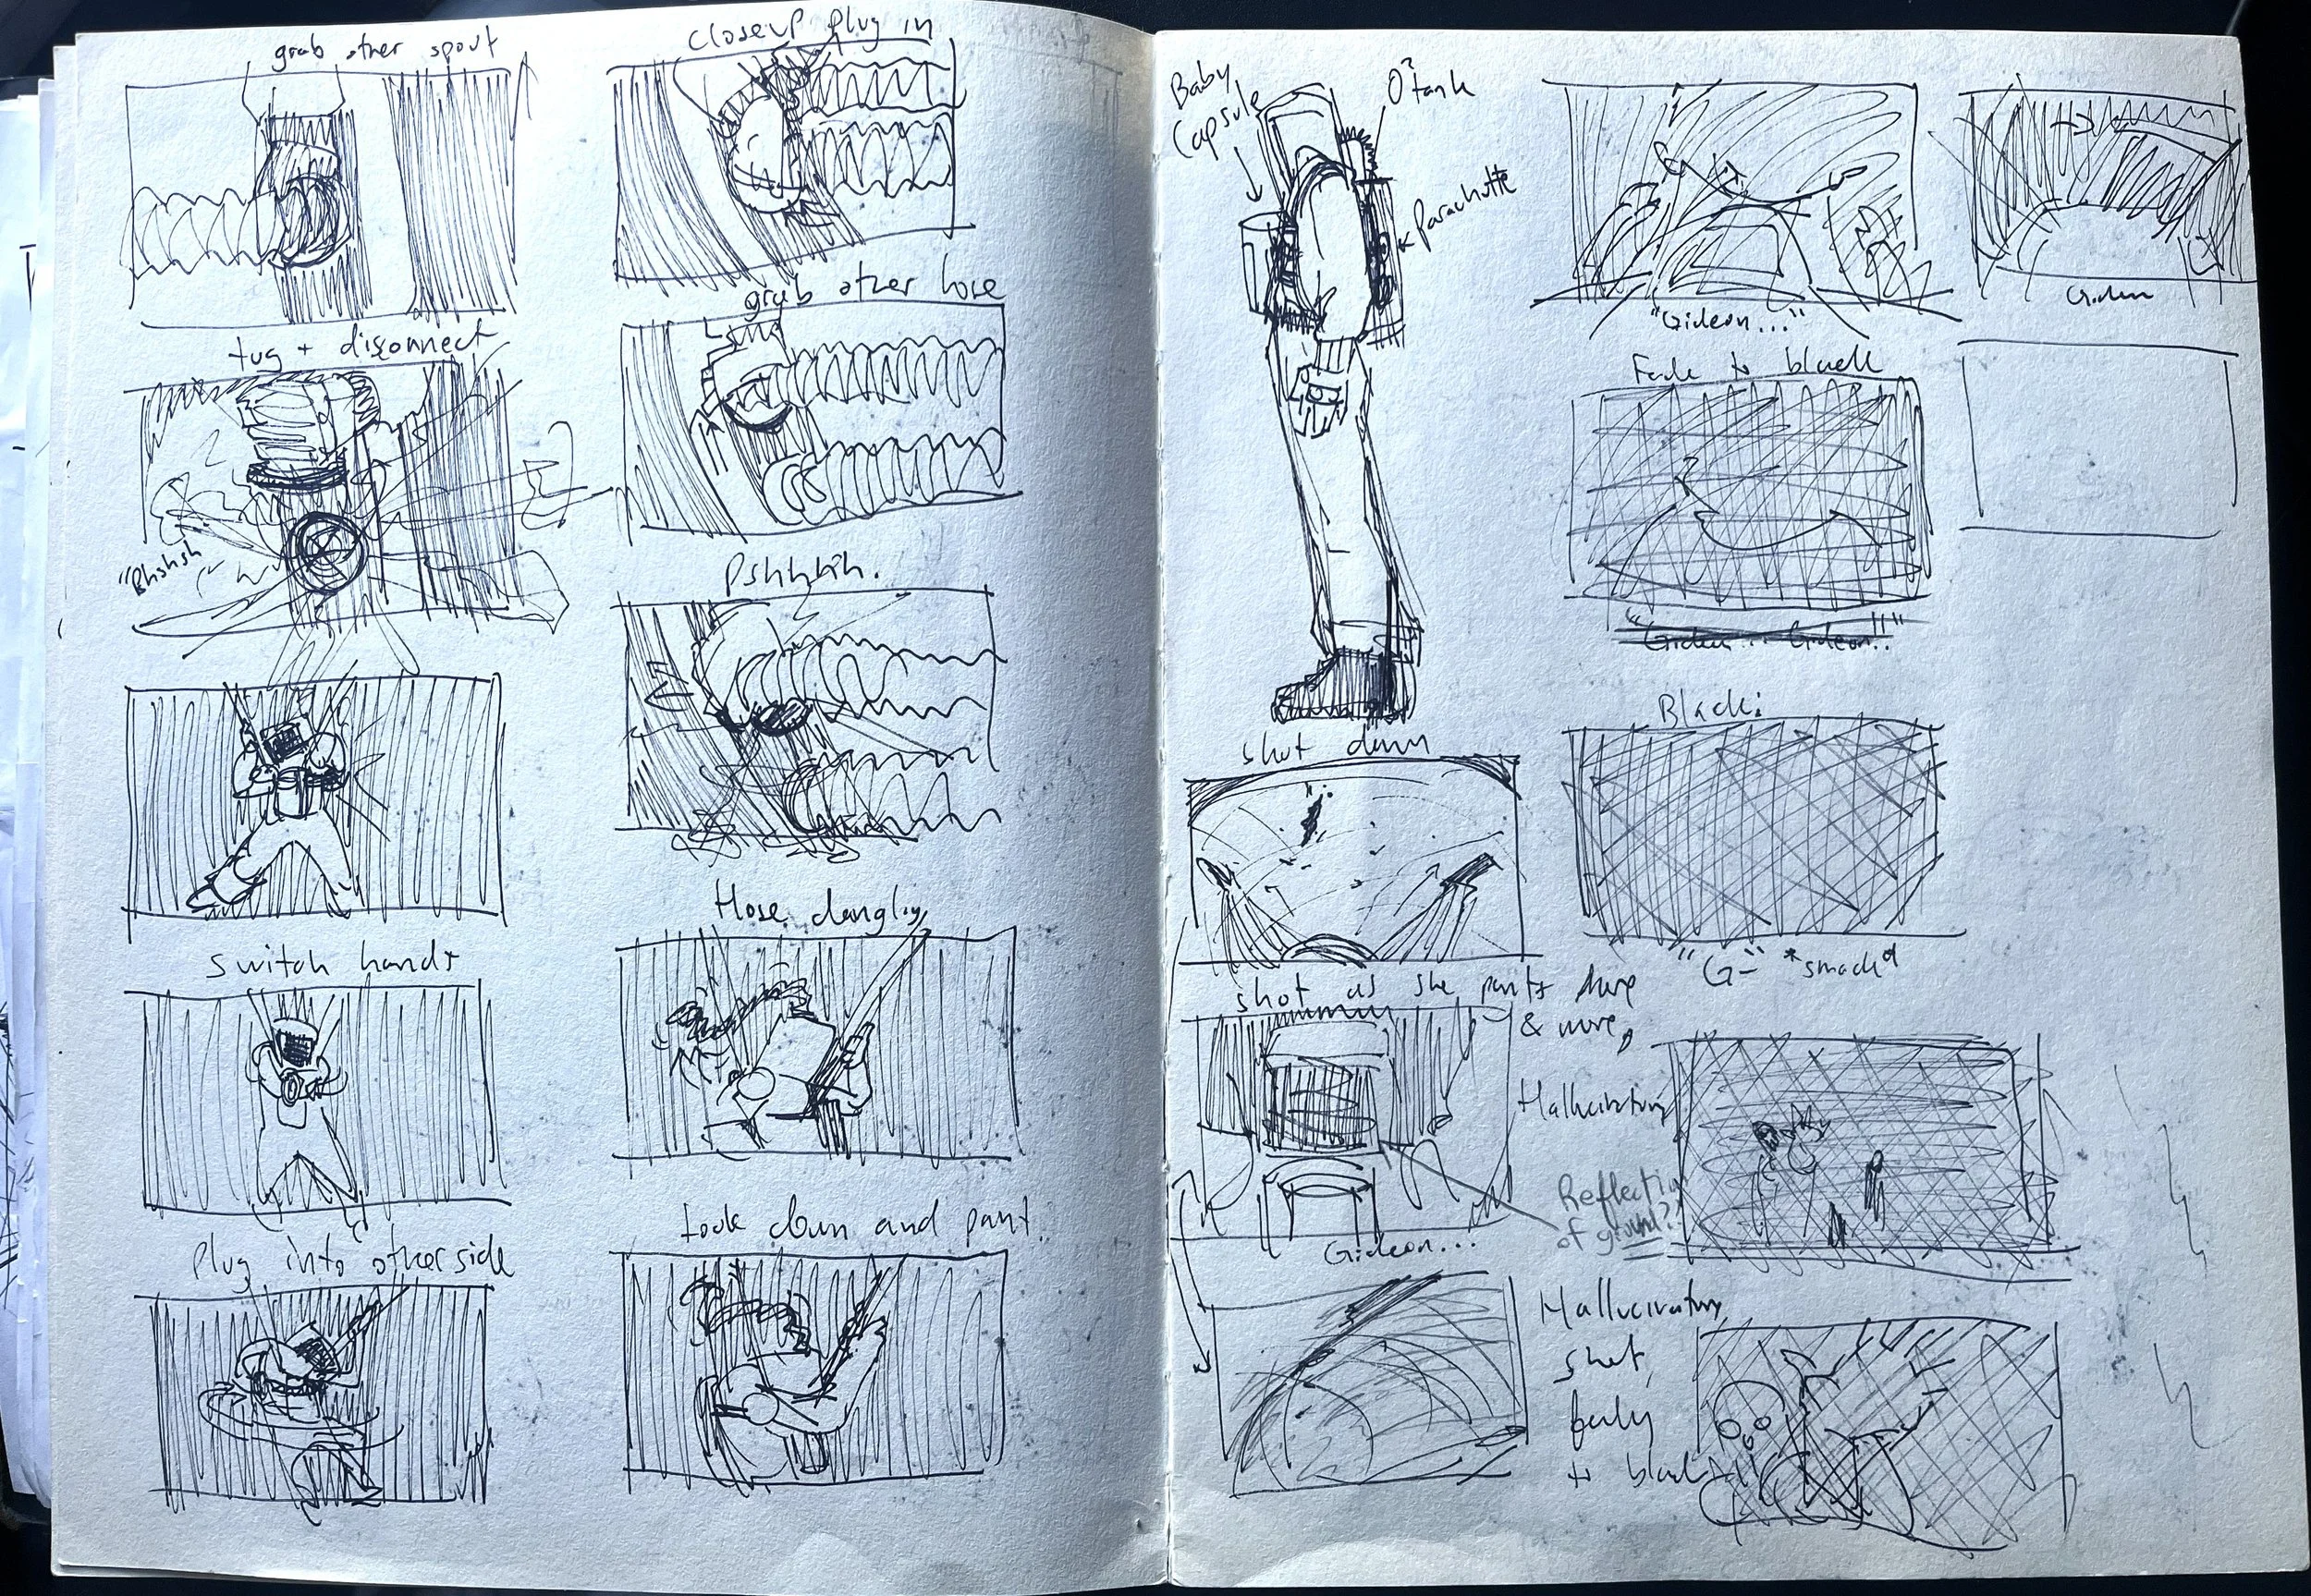 grab other spout
tug + disconnect
"Phshsh
Switch hands
Plug into other side
closeup plug in
grab other hose
Pshhhhh.
Hose dangling
Look down and pant.
Baby
Capsule
O² tank
Parachute
shot down
shot as she pants more
& more,
Gideon...
"Gideon..."
Fade to black
"Gideon... Gideon!!"
Black:
"G-" *smack*
Hallucination
Reflection
of ground?
Hallucination
shot,
fading
to black
Gideon